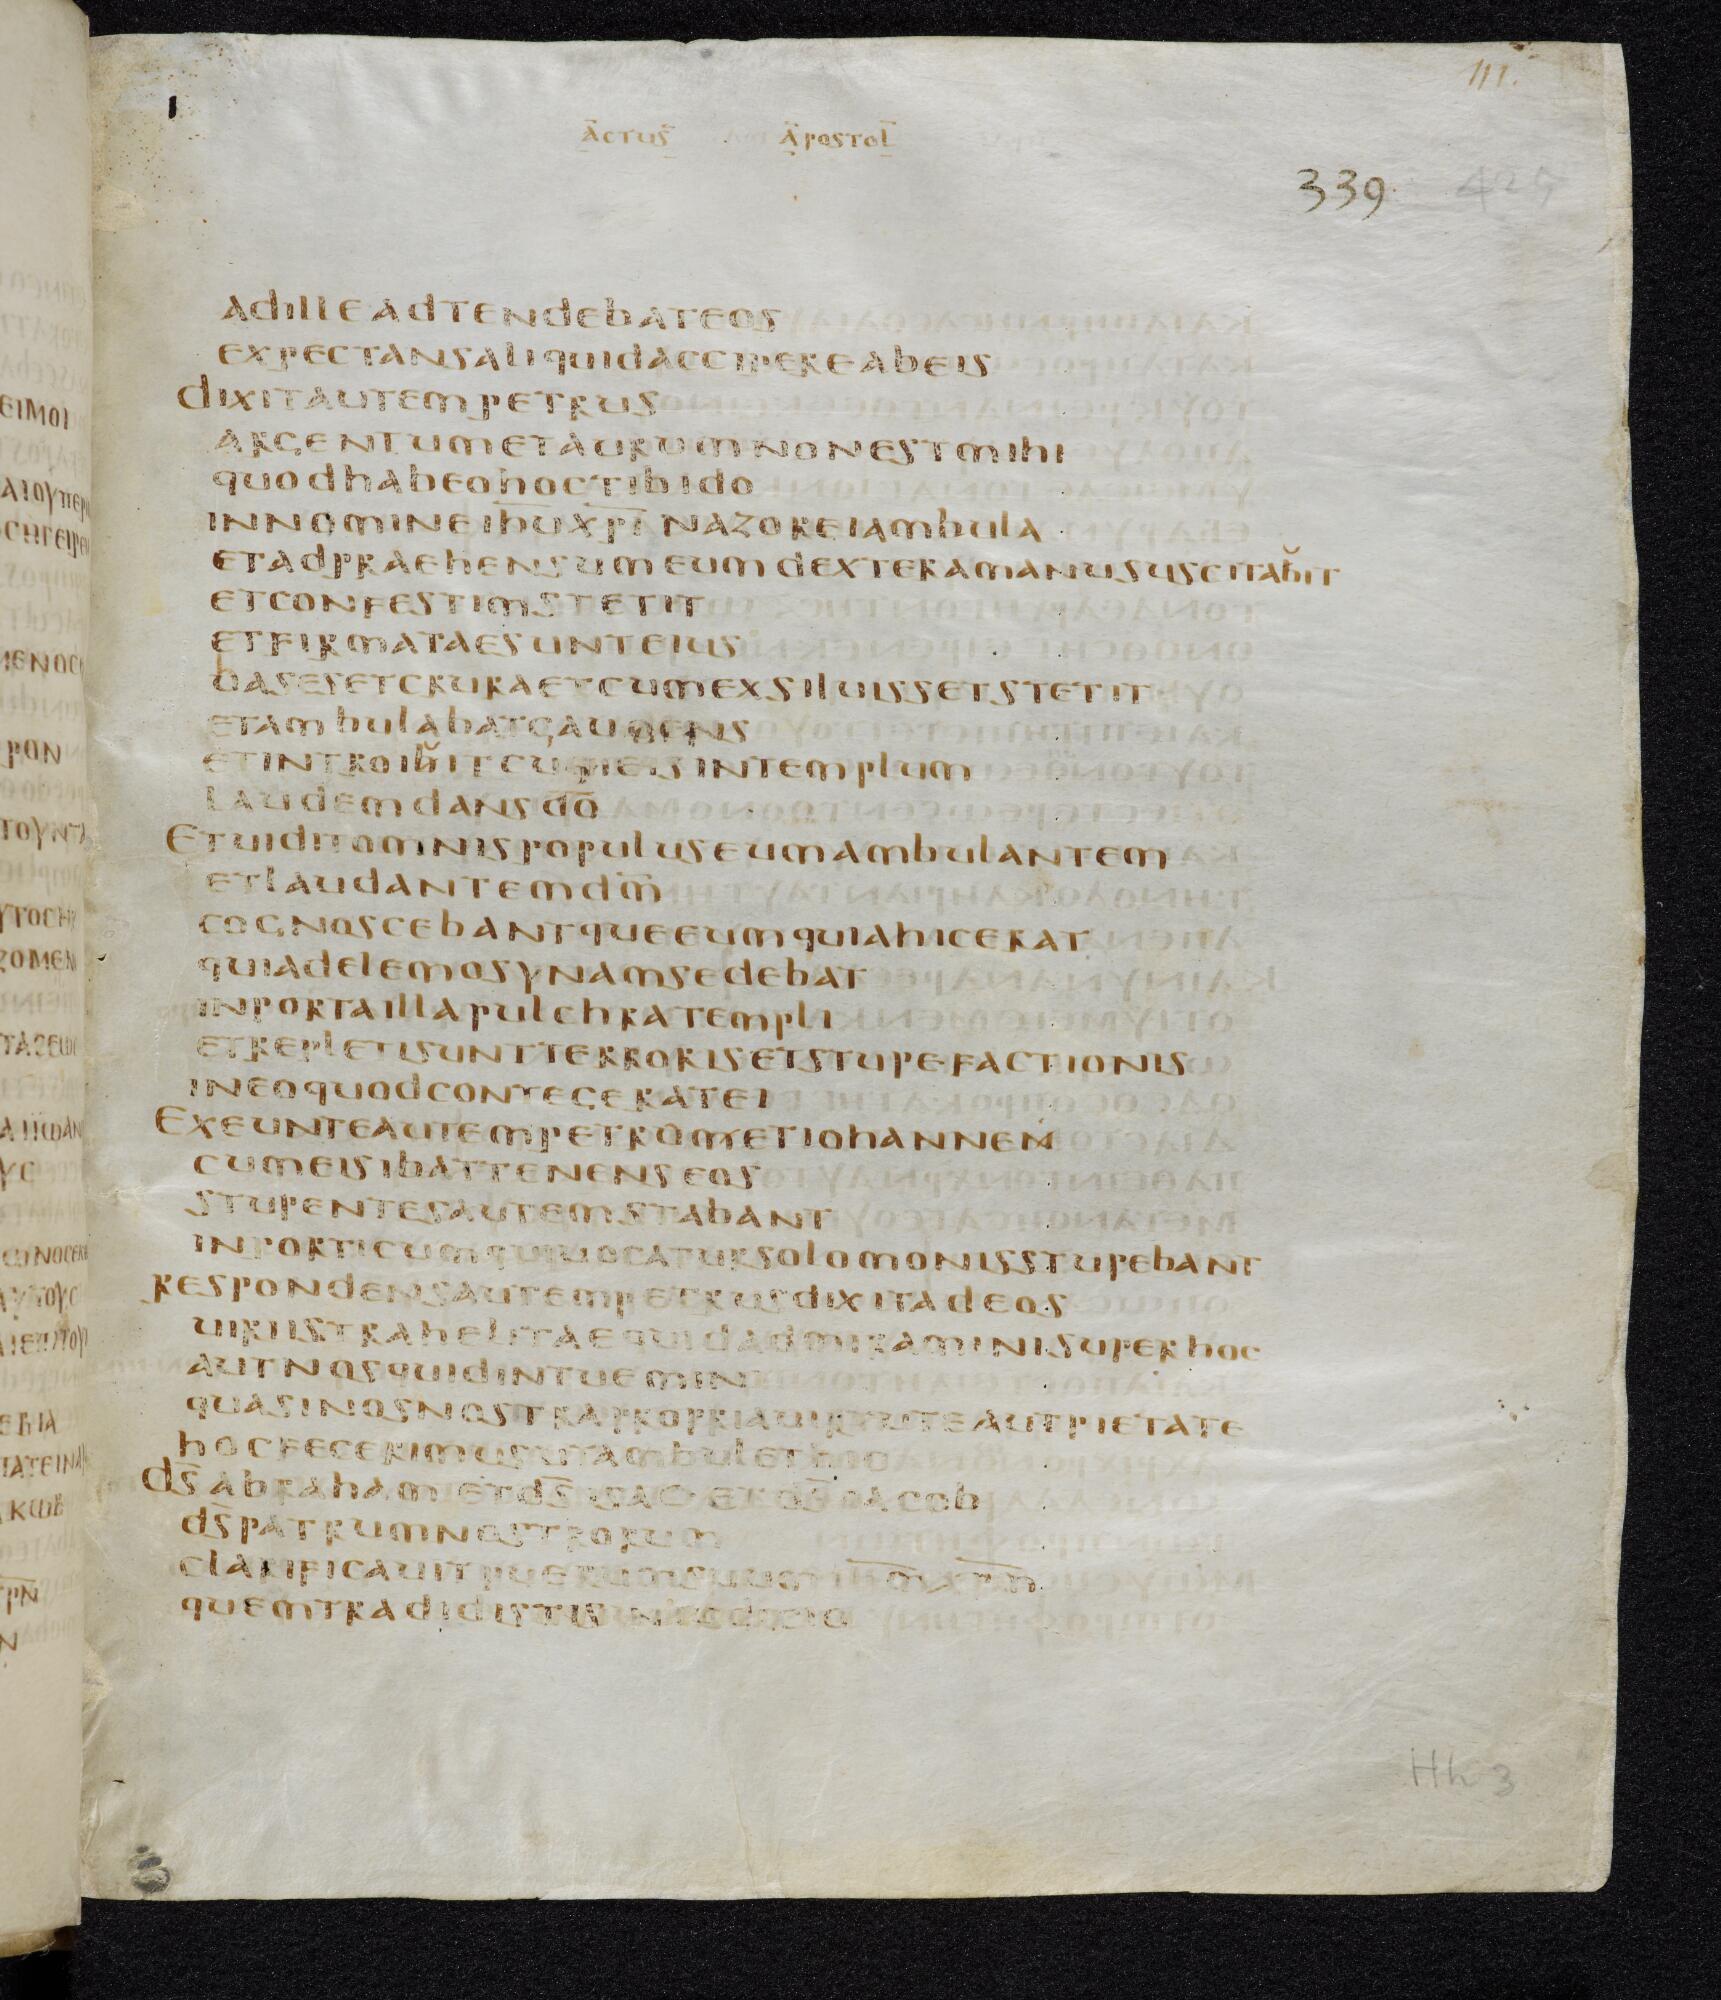 III.
ACTUS APOSTOL
339 425
adilleadtendebateos
expectansaliquidaccipereabeis
dixitautempetrus
argentumetaurumnonestmihi
quodhabeohoctibido
innomineih̅ux̅p̅i̅nazoreiambula
etadpraehensumeumdexteramanususcitabit
etconfestimstetit
etfirmataesunteius
basesetcruraetcumexsiluissetstetit
etambulabatgaudens
etintroibitcumeisintemplum
laudemdansd̅o̅
Etuiditomnispopuluseumambulantem
etlaudantemd̅m̅
cognoscebantqueeumquiahicerat
quiadelemosynamsedebat
inportaillapulchratempli
etrepletisuntterrorisetstupefactionis
ineoquodcontegeratei
Exeunteautempetrumetiohannen
cumeisibattenenseos
stupentesautemstabant
inporticumquiuocatursolomonisstupebant
respondensautempetrusdixitadeos
uiriistrahelitaequidadmiraminisuperhoc
autnosquidintuemini
quasinosnostrapropriauirtuteautpietate
hocfecerimusutambulethic
d̅s̅abrahametd̅s̅isacetd̅s̅iacob
d̅s̅patrumnostrorum
clarificauitpuerumsuumih̅m̅x̅p̅m̅
quemtradidistisiniudicio
Hh 3